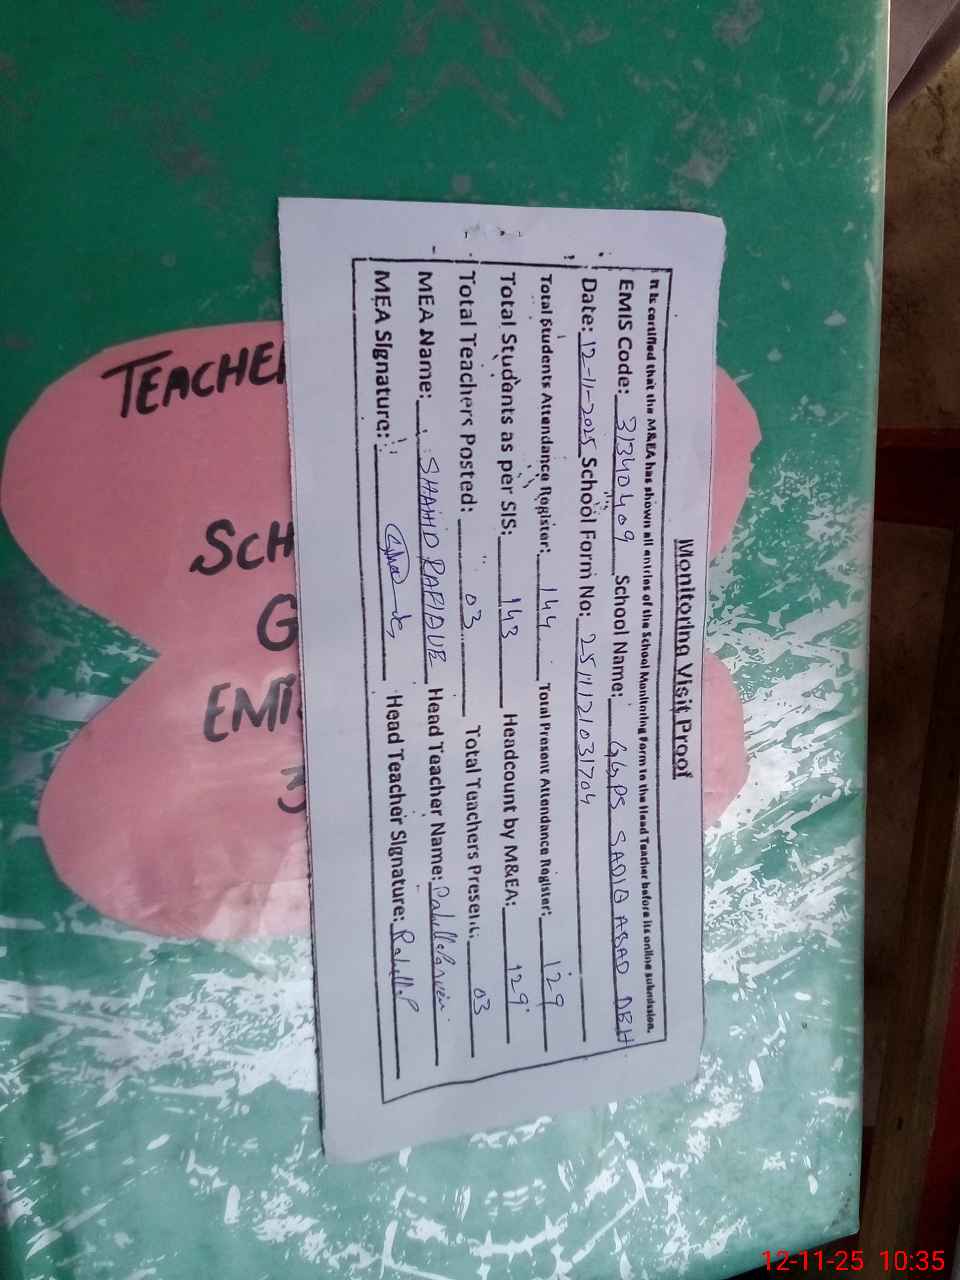 Monitoring Visit Proof
It is certified that the M&EA has shown all entries of the School Monitoring Form to the Head Teacher before its online submission.
EMIS Code: 31340409 School Name: GGPS SADIQ ABAD DBH
Date: 12-11-2025 School Form No: 2511121031704
Total Students Attendance Register: 144 Total Present Attendance Register: 129
Total Students as per SIS: 143 Headcount by M&EA: 129
Total Teachers Posted: 03 Total Teachers Present: 03
MEA Name: SHAHID RAFIQUE Head Teacher Name:
MEA Signature: Head Teacher Signature:
TEACHE
SCH
G
EMI
12-11-25 10:35